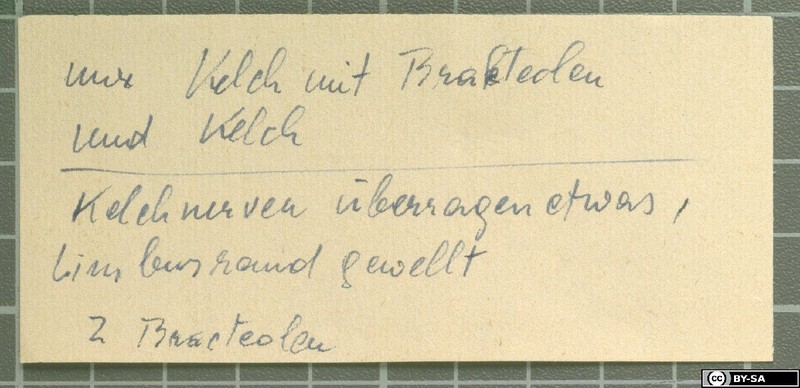 nur Kelch mit Brakteolen
und Kelch
Kelchnerven überragen etwas,
Limbusrand gewellt
2 Bracteolen
cc BY-SA